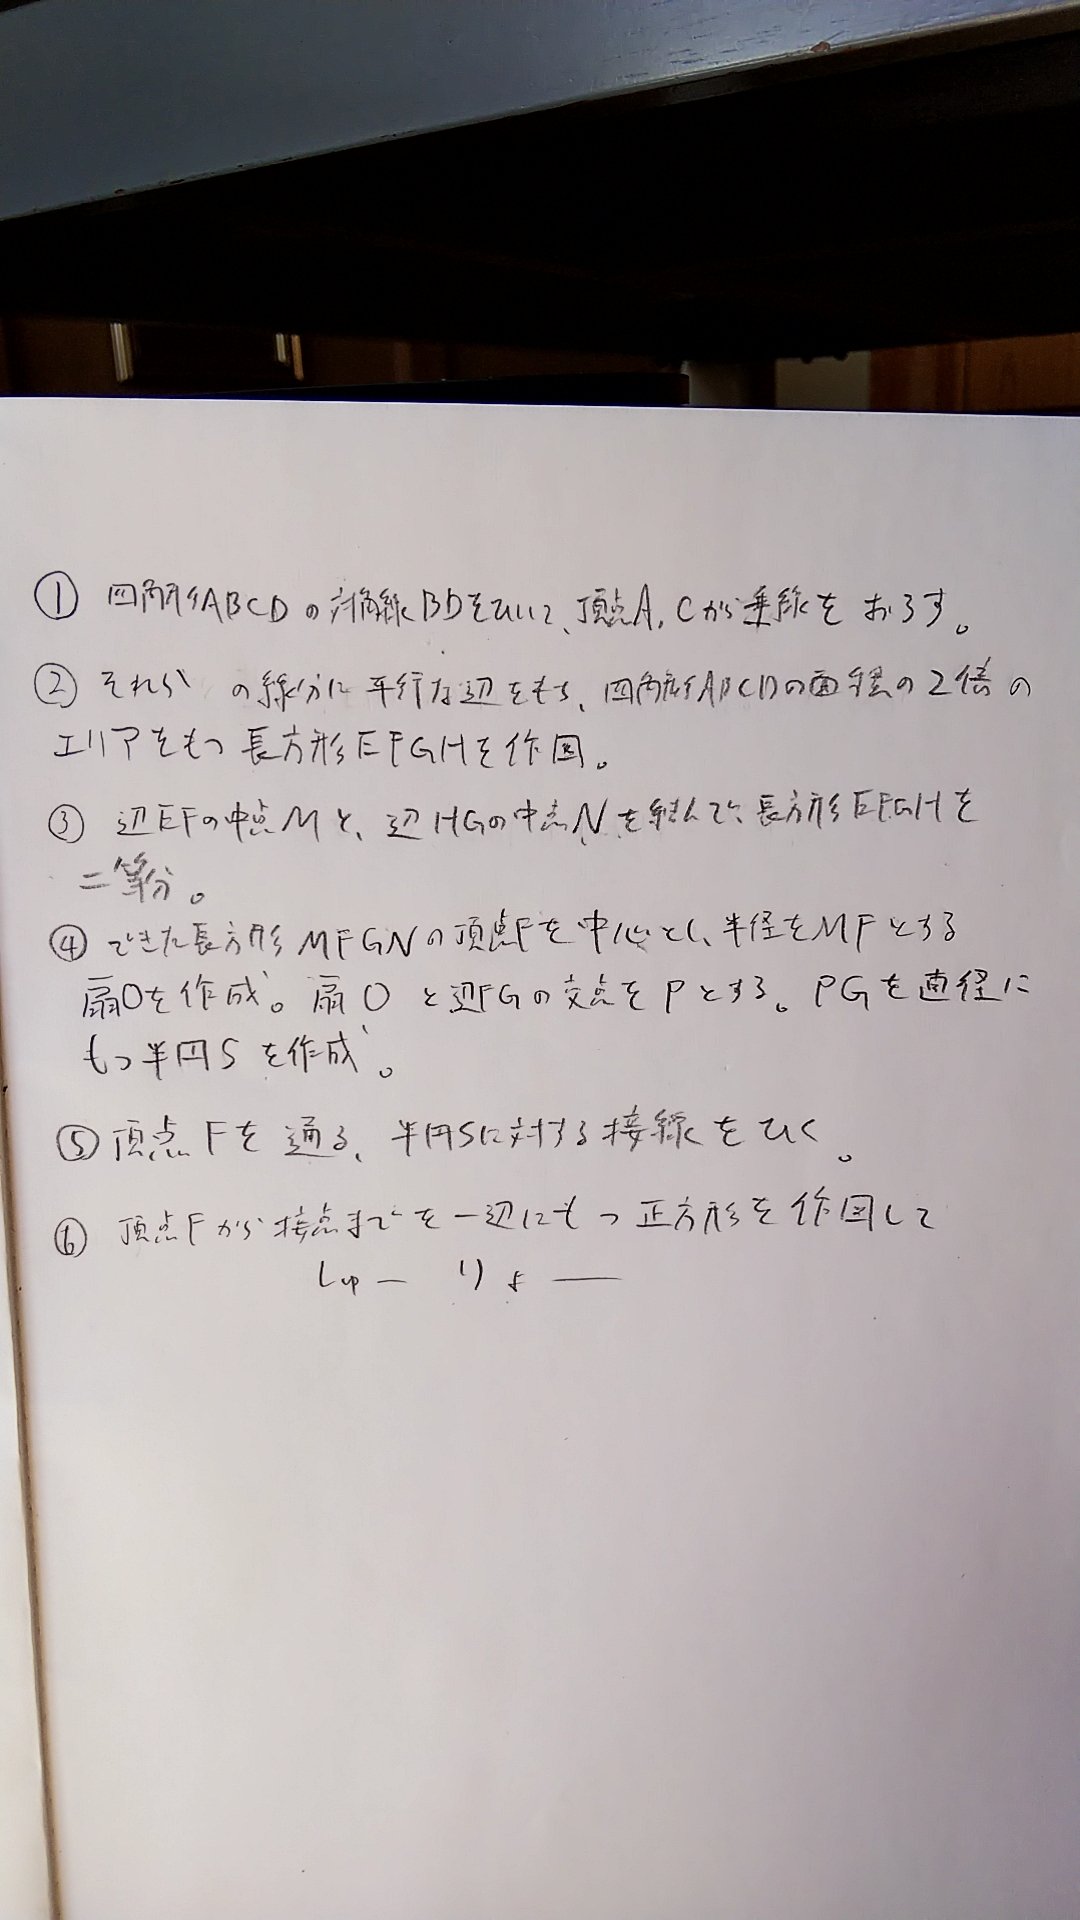 ① 四角形ABCDの対角線BDをひいて、頂点A,Cから垂線をおろす。
② それらの線分に平行な辺をもち、四角形ABCDの面積の2倍の
エリアをもつ長方形EFGHを作図。
③ 辺EFの中点Mと、辺HGの中点Nを結んで、長方形EFGHを
二等分。
④ できた長方形MFGNの頂点Fを中心とし、半径をMFとする
扇Oを作成。扇Oと辺FGの交点をPとする。PGを直径に
もつ半円Sを作成。
⑤ 頂点Fを通る、半円Sに対する接線をひく。
⑥ 頂点Fから接点までを一辺にもつ正方形を作図して
しゅー りょ——